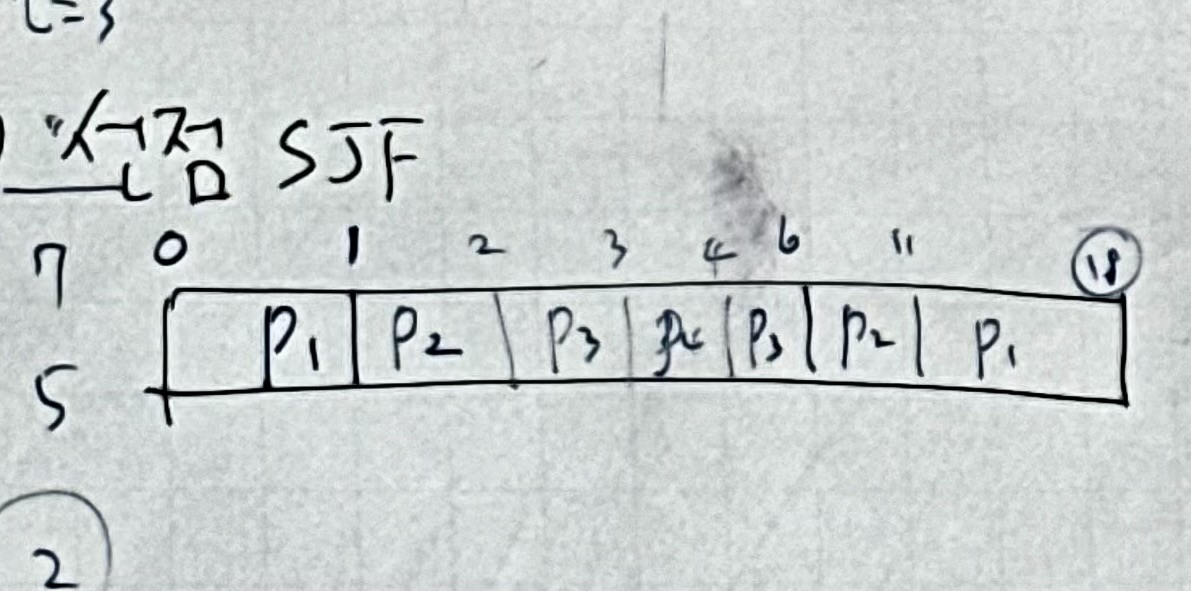 t=3
) "선점 SJF
7 0 1 2 3 4 6 11 18
P1 P2 P3 P4 P3 P2 P1
5
2